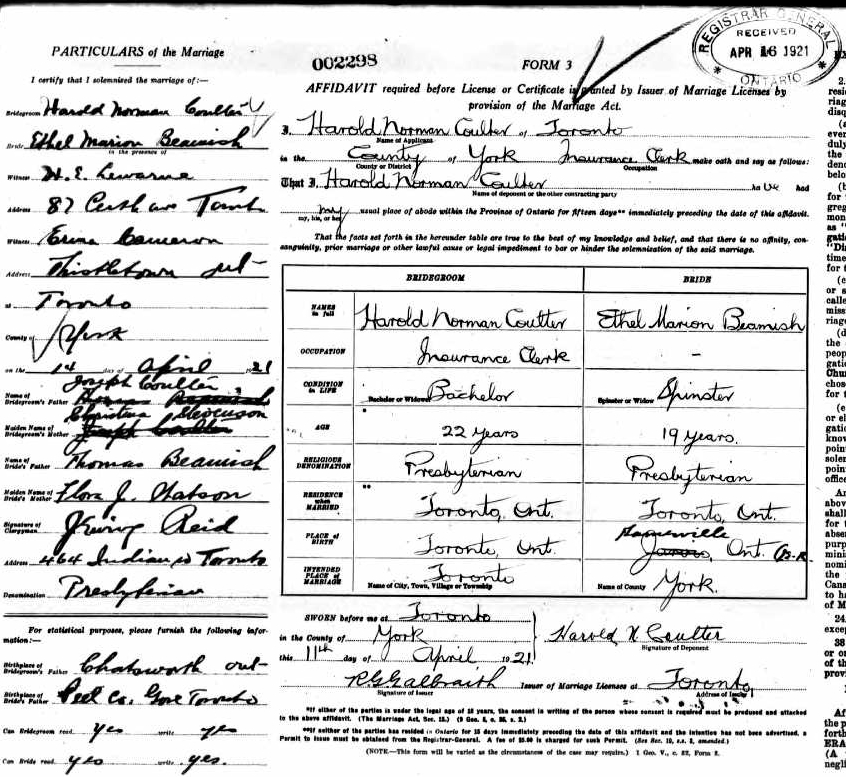 PARTICULARS of the Marriage
I certify that I solemnized the marriage of:—
Bridegroom Harold Norman Coulter
Bride Ethel Marion Beamish
in the presence of
Witness H. E. Lewarne
Address 87 Ave Toronto
Witness Erma Cameron
Address Thistletown Ont-
at Toronto
County of York
on the 14 day of April 1921
Joseph Coulter
Name of Bridegroom's Father
Christina Stevenson
Maiden Name of Bridegroom's Mother Joseph Coulter
Name of Bride's Father Thomas Beamish
Maiden Name of Bride's Mother Flora J. Watson
Signature of Clergyman J Irving Reid
Address 464 Indian Toronto
Denomination Presbyterian
For statistical purposes, please furnish the following information:—
Birthplace of Bridegroom's Father Chatsworth Ont-
Birthplace of Bride's Father Peel Co. Gore Toronto
Can Bridegroom read Yes write yes
Can Bride read yes write yes.
002298
FORM 3
REGISTRAR GENERAL
RECEIVED
APR 16 1921
ONTARIO
AFFIDAVIT required before License or Certificate is granted by Issuer of Marriage Licenses by
provision of the Marriage Act.
I, Harold Norman Coulter of Toronto
Name of Applicant
in the County of York Insurance Clerk make oath and say as follows:
County or District Occupation
That I, Harold Norman Coulter have had
Name of deponent or the other contracting party
my usual place of abode within the Province of Ontario for fifteen days** immediately preceding the date of this affidavit.
my, his, or her
That the facts set forth in the hereunder table are true to the best of my knowledge and belief, and that there is no affinity, con-
sanguinity, prior marriage or other lawful cause or legal impediment to bar or hinder the solemnization of the said marriage.
BRIDEGROOM BRIDE
NAMES in full Harold Norman Coulter Ethel Marion Beamish
OCCUPATION Insurance Clerk -
CONDITION in LIFE Bachelor or Widower Bachelor Spinster or Widow Spinster
AGE * 22 years 19 years.
RELIGIOUS DENOMINATION Presbyterian Presbyterian
RESIDENCE when MARRIED ** Toronto, Ont. Toronto, Ont.
PLACE of BIRTH Toronto, Ont. Somerville Ont.
INTENDED PLACE of MARRIAGE Toronto York.
Name of City, Town, Village or Township Name of County
SWORN before me at Toronto
in the County of York
this 11th day of April 1921.
Harold N Coulter
Signature of Deponent
R G Galbraith Issuer of Marriage Licenses at Toronto
Signature of Issuer Address of Issuer
*If either of the parties is under the legal age of 18 years, the consent in writing of the person whose consent is required must be produced and attached
to the above affidavit. (The Marriage Act, Sec. 15.)
**If neither of the parties has resided in Ontario for 15 days immediately preceding the date of this affidavit and the intention has not been advertised, a
Permit to issue must be obtained from the Registrar-General. A fee of $5.00 is charged for such Permit. (See Sec. 19, s.s. 2, amended.)
(NOTE.—This form will be varied as the circumstances of the case may require.) 1 Geo. V., c. 32, Form 3.